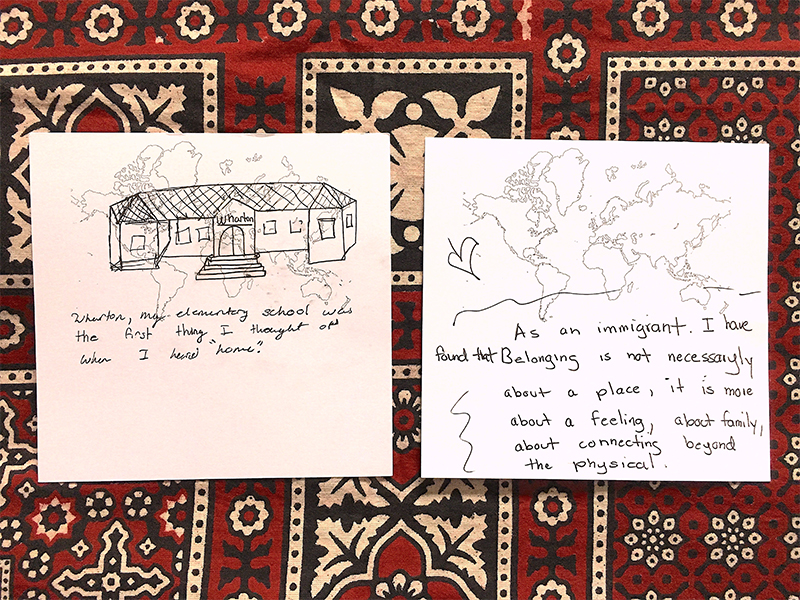 Wharton
Wharton, my elementary school was
the first thing I thought of
when I heard "home".
As an immigrant. I have
found that Belonging is not necessarily
about a place, it is more
about a feeling, about family,
about connecting beyond
the physical.